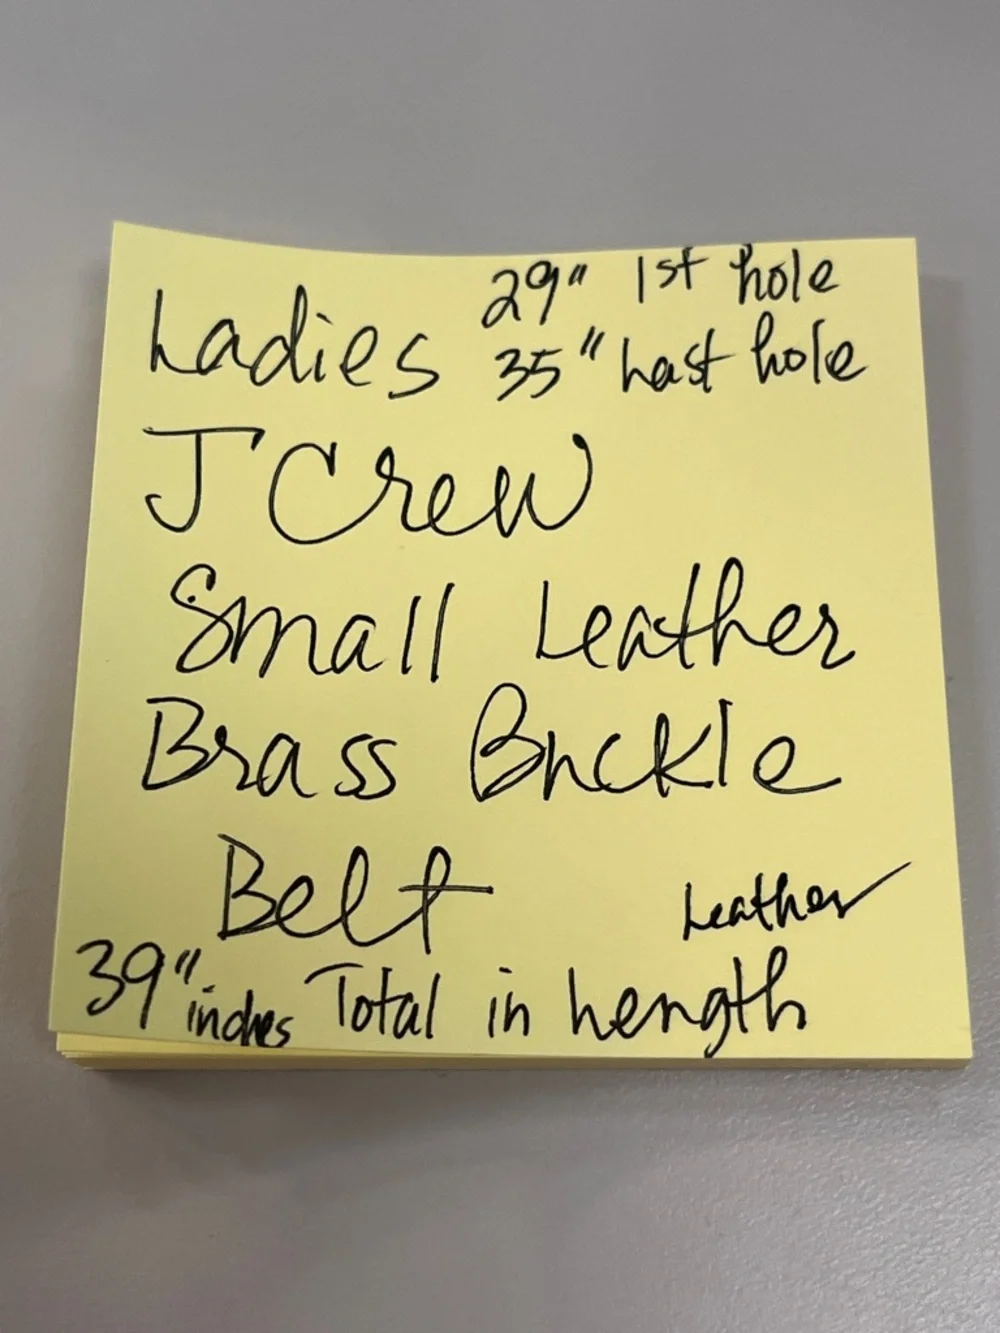 29" 1st hole
Ladies 35" Last hole
J Crew
Small Leather
Brass Buckle
Belt Leather
39" inches Total in Length